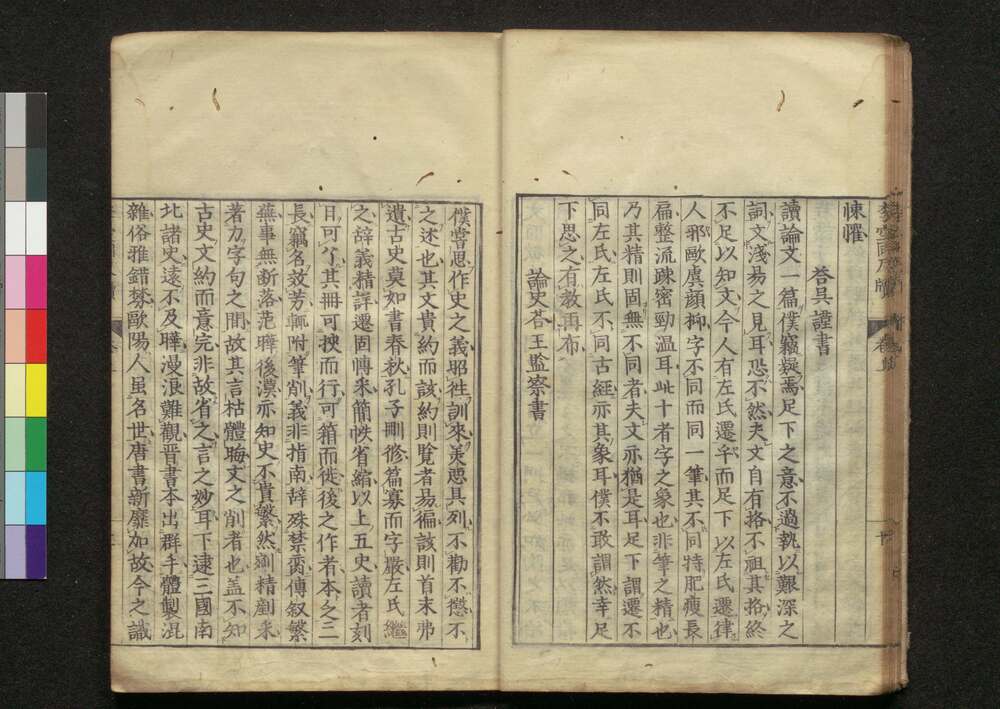 悚懼
答吳謹書
讀論文一篇僕竊疑焉足下之意不過執以艱深之
詞文淺易之見耳恐不然夫文自有格不祖其格終
不足以知文今人有左氏遷乎而足下以左氏遷律
人邪歐虞顔柳字不同而同一筆其不同特肥瘦長
扁整流疎密勁溫耳此十者字之象也非筆之精也
乃其精則固無不同者夫文亦猶是耳足下謂遷不
同左氏左氏不同古經亦其象耳僕不敢謂然幸足
下思之有教再布
論史荅王監察書
僕嘗思作史之義昭徃訓來美惡具列不勸不懲不
之述也其文貴約而該約則覽者易徧該則首末弗
遺古史莫如書春秋孔子刪修篇寡而字嚴左氏繼
之辞義精詳遷固愽來簡帙省縮以上五史讀者刻
日可了其冊可挾而行可箱而徙後之作者本乏三
長竊名效芳輒附筆削義非指南辞殊禁臠傳叙繁
蕪事無断落范曄後漢亦知史不貴繁然剜精剷采
著力字句之間故其言枯體晦文之削者也盖不知
古史文約而意完非故省之言之妙耳下逮三國南
北諸史遠不及曄漫浪難觀晋書本出群手體製混
雜俗雅錯棼歐陽人虽名世唐書新靡加故今之識